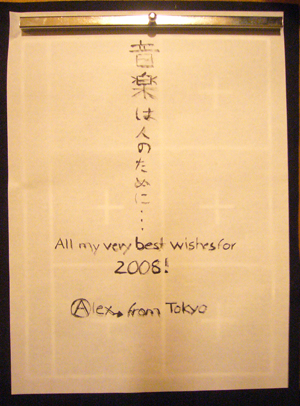 音楽は人のために...
All my very best wishes for
2008!
Alex from Tokyo